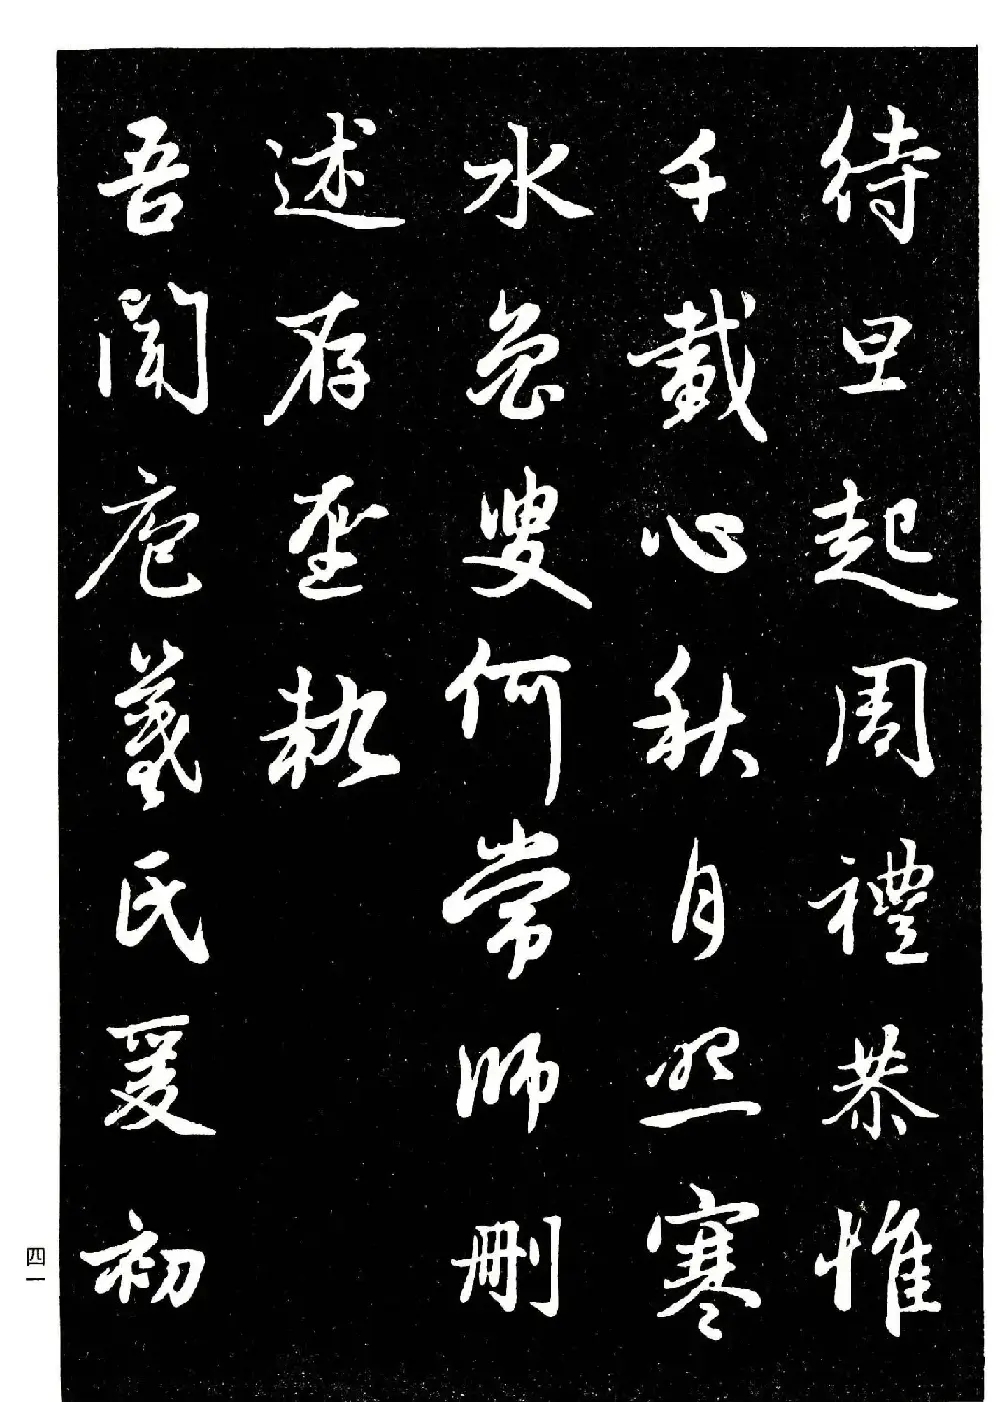 待旦起周禮恭惟
千載心秋月照寒
水魯叟何常師刪
述存聖軌
吾聞庖羲氏爰初
四一